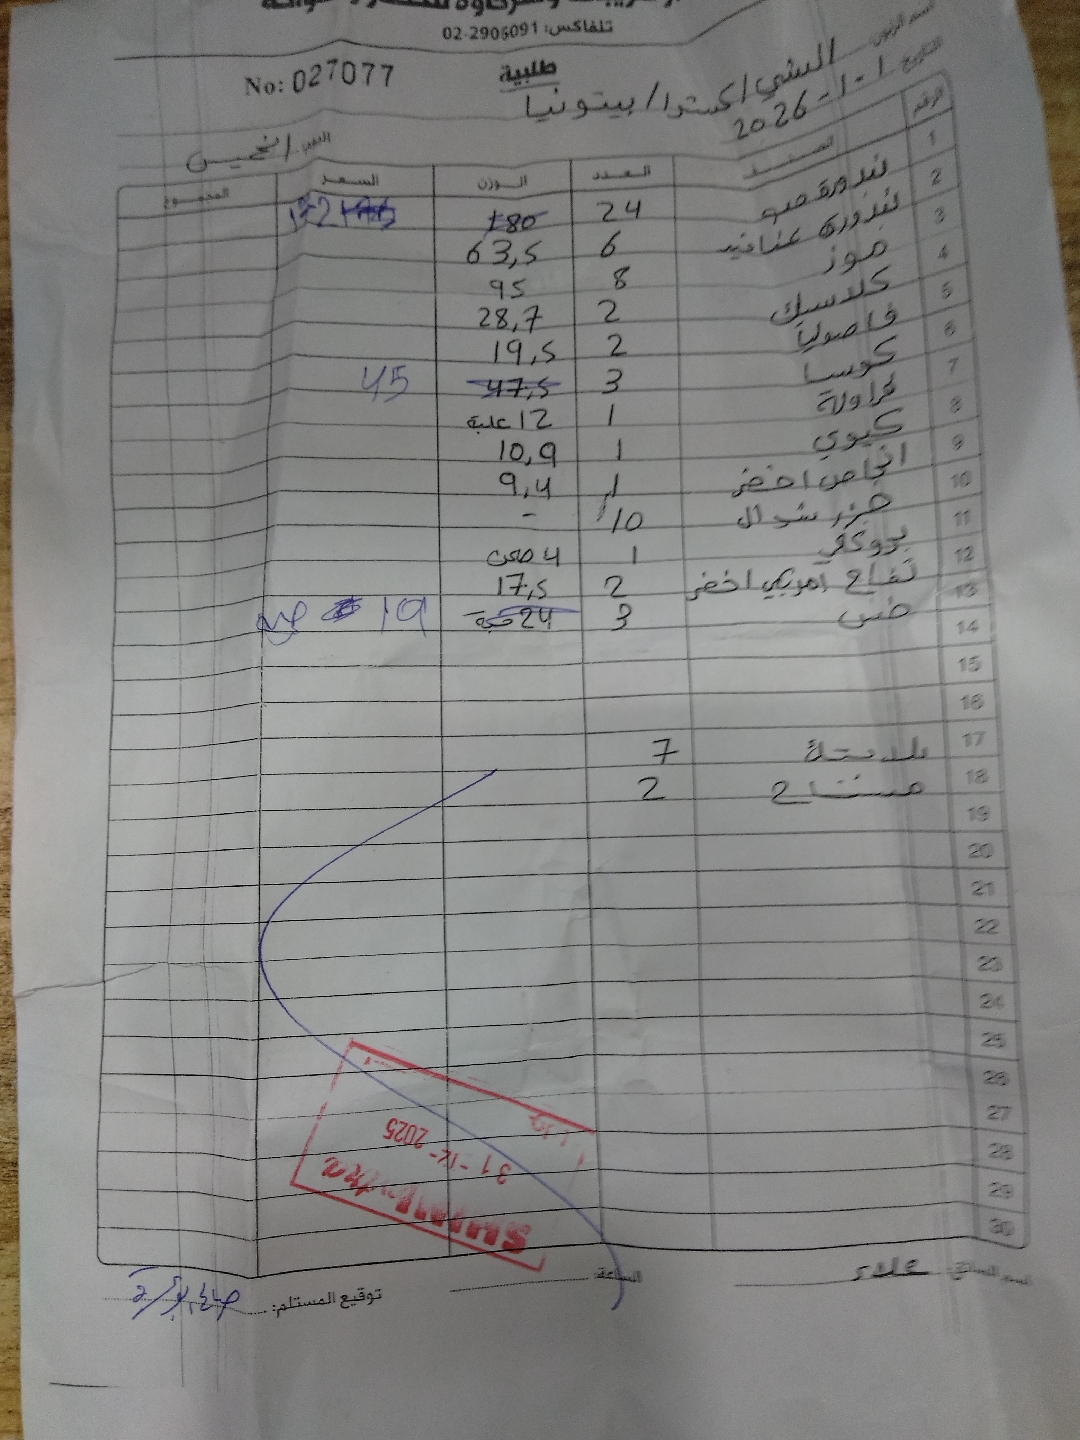 تلفاكس: 02-2906091
No: 027077
طلبية
اسم الزبون: الشني اكسترا / بيتونيا
التاريخ 2026-1-1
اليوم: الخميس
الرقم الصنف العدد الوزن السعر المجموع
1 بندورة 24 180 172
2 بندورة عناقيد 6 63,5
3 موز 8 95
4 كلاسيك 2 28,7
5 فاصوليا 2 19,5
6 كوسا 3 47,5 45
7 فراولة 1 12 علبة
8 كيوي 1 10,9
9 انجاص اخضر 1 9,4
10 جزر شوال 10 -
11 بروكلي 1 4 صحن
12 تفاح امريكي اخضر 2 17,5
13 خس 3 24 حبة 19
14
15
16
17 بلاستك 7
18 مشتاح 2
19
20
21
22
23
24
25
26
27
28
29
30
31-12-2025
اسم السائق: علاء
الساعة:
توقيع المستلم: